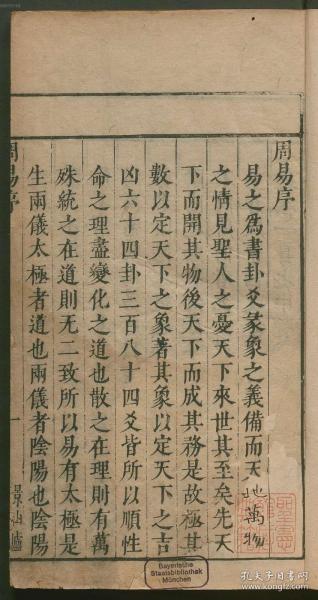 周易序
易之爲書卦爻彖象之義備而天地萬物
之情見聖人之憂天下來世其至矣先天
下而開其物後天下而成其務是故極其
數以定天下之象著其象以定天下之吉
凶六十四卦三百八十四爻皆所以順性
命之理盡變化之道也散之在理則有萬
殊統之在道則无二致所以易有太極是
生兩儀太極者道也兩儀者陰陽也陰陽
周易序
一
Bayerische
Staatsbibliothek
München
孔夫子旧书网